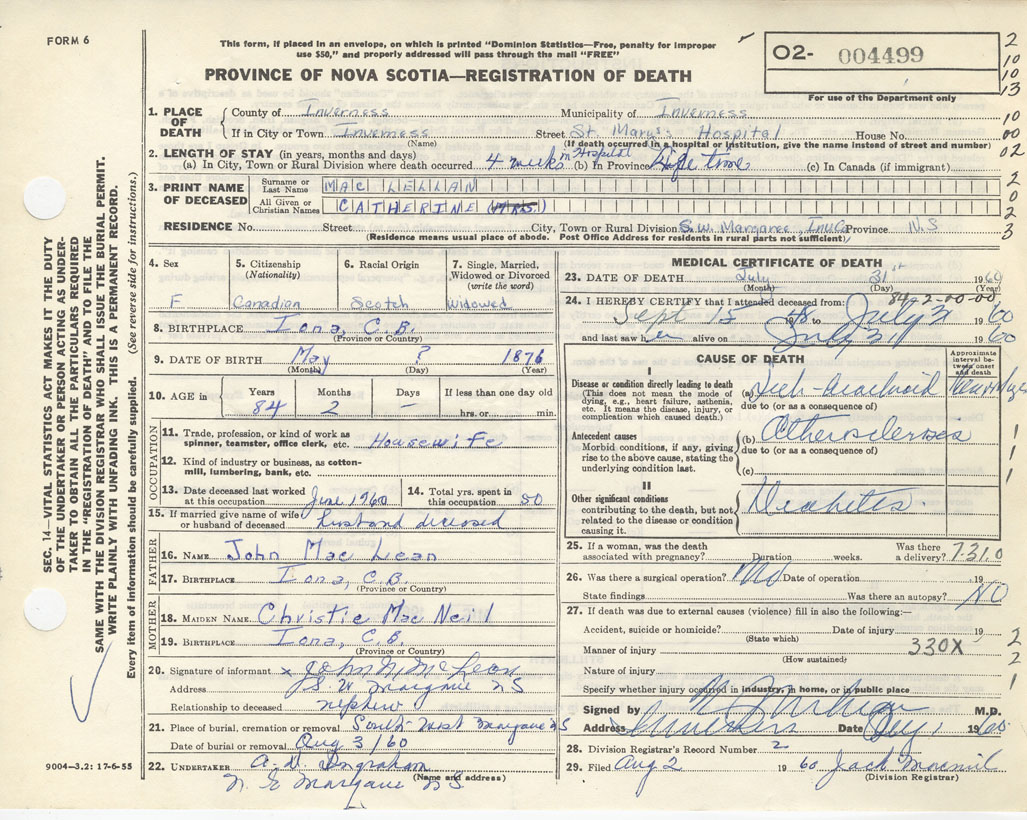 FORM 6
This form, if placed in an envelope, on which is printed "Dominion Statistics—Free, penalty for improper
use $50," and properly addressed will pass through the mail "FREE"
PROVINCE OF NOVA SCOTIA—REGISTRATION OF DEATH
O2- 004499
For use of the Department only
2
10
10
13
1. PLACE OF DEATH
County of Inverness Municipality of Inverness 10
If in City or Town Inverness Street St. Mary's Hospital House No. 00
(Name) (If death occurred in a hospital or institution, give the name instead of street and number)
2. LENGTH OF STAY (in years, months and days) 02
(a) In City, Town or Rural Division where death occurred 4 weeks in Hospital (b) In Province Life time (c) In Canada (if immigrant)
3. PRINT NAME OF DECEASED
Surname or Last Name MAC LELLAN 2
0
All Given or Christian Names CATHERINE (MRS.) 2
RESIDENCE No. Street City, Town or Rural Division S.W. Margaree Inv. Co Province N.S 3
(Residence means usual place of abode. Post Office Address for residents in rural parts not sufficient)
4. Sex F
5. Citizenship (Nationality) Canadian
6. Racial Origin Scotch
7. Single, Married, Widowed or Divorced (write the word) Widowed
8. BIRTHPLACE Iona, C.B.
(Province or Country)
9. DATE OF BIRTH May ? 1876
(Month) (Day) (Year)
10. AGE in Years Months Days If less than one day
84 2 — hrs. or min.
OCCUPATION
11. Trade, profession, or kind of work as spinner, teamster, office clerk, etc. Housewife
12. Kind of industry or business, as cotton-mill, lumbering, bank, etc.
13. Date deceased last worked at this occupation June 1960
14. Total yrs. spent in this occupation 50
15. If married give name of wife or husband of deceased husband deceased
FATHER
16. NAME John Mac Lean
17. BIRTHPLACE Iona, C.B.
(Province or Country)
MOTHER
18. MAIDEN NAME Christie Mac Neil
19. BIRTHPLACE Iona, C.B.
(Province or Country)
20. Signature of informant x John N. McLean
Address S. W. Margaree NS
Relationship to deceased nephew
21. Place of burial, cremation or removal South West Margaree NS
Date of burial or removal Aug 3/60
22. UNDERTAKER A. D. Ingraham
(Name and address)
N. E Margaree N.S
9004—3.2: 17-6-55
MEDICAL CERTIFICATE OF DEATH
23. DATE OF DEATH July 31st 1960
(Month) (Day) (Year)
84-2-00-00
24. I HEREBY CERTIFY that I attended deceased from:
Sept 15 19 to July 31 1960
and last saw her alive on July 31 1960
CAUSE OF DEATH
Approximate interval between onset and death
I
Disease or condition directly leading to death
(This does not mean the mode of dying, e.g., heart failure, asthenia, etc. It means the disease, injury, or complication which caused death.)
(a)
due to (or as a consequence of)
Antecedent causes
Morbid conditions, if any, giving rise to the above cause, stating the underlying condition last.
(b) Atherosclerosis 1
due to (or as a consequence of) 1
(c) 1
II
Other significant conditions
contributing to the death, but not related to the disease or condition causing it.
Diabetes
25. If a woman, was the death associated with pregnancy? Duration weeks. Was there a delivery? 731.0
26. Was there a surgical operation? No Date of operation 19
State findings Was there an autopsy? NO
27. If death was due to external causes (violence) fill in also the following:—
Accident, suicide or homicide? Date of injury 19 2
(State which)
Manner of injury 330X 2
(How sustained)
Nature of injury 1
Specify whether injury occurred in industry, in home, or in public place
Signed by M.D.
Address Inverness Date Aug 1 1960
28. Division Registrar's Record Number 2
29. Filed Aug 2 1960 Jack Macneil
(Division Registrar)
SEC. 14—VITAL STATISTICS ACT MAKES IT THE DUTY
OF THE UNDERTAKER OR PERSON ACTING AS UNDER-
TAKER TO OBTAIN ALL THE PARTICULARS REQUIRED
IN THE "REGISTRATION OF DEATH" AND TO FILE THE
SAME WITH THE DIVISION REGISTRAR WHO SHALL ISSUE THE BURIAL PERMIT.
WRITE PLAINLY WITH UNFADING INK. THIS IS A PERMANENT RECORD.
Every item of information should be carefully supplied. (See reverse side for instructions.)